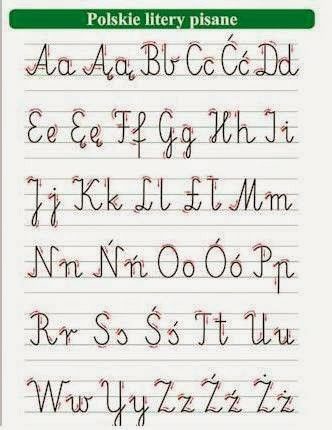 Polskie litery pisane
Aa Ąą Bb Cc Ćć Dd
Ee Ęę Ff Gg Hh Ii
Jj Kk Ll Łł Mm
Nn Ńń Oo Óó Pp
Rr Ss Śś Tt Uu
Ww Yy Zz Źź Żż